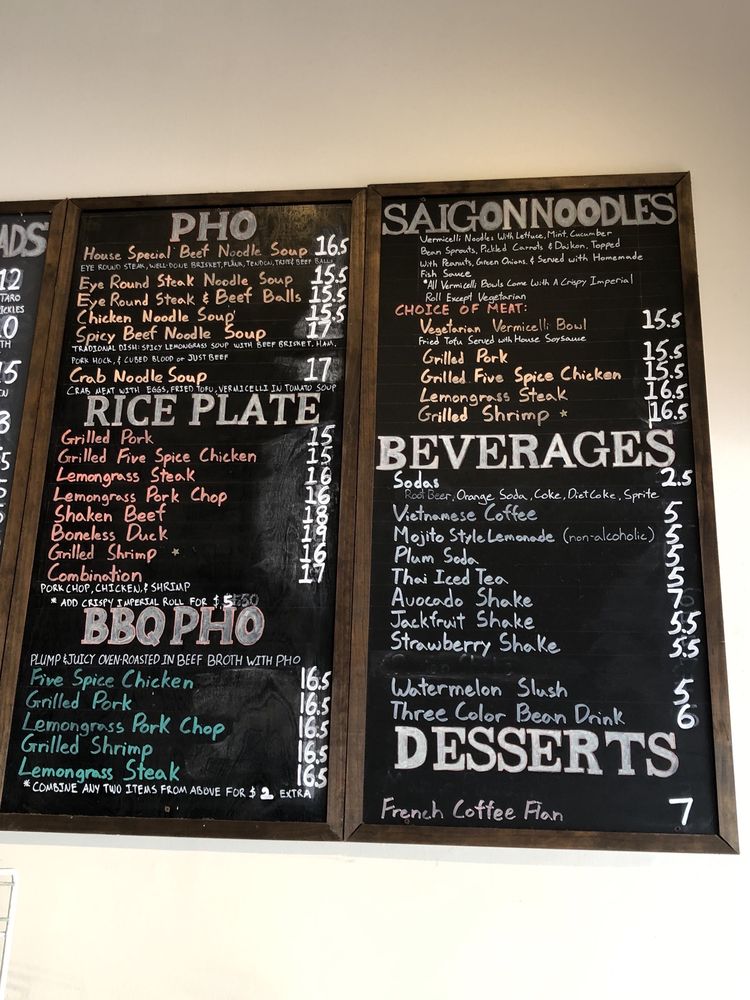 ADS
12
TARO
PICKLES
0
TH
15
PHO
House Special Beef Noodle Soup 16.5
EYE ROUND STEAK, WELL-DONE BRISKET, FLANK, TENDON, TRIPE & BEEF BALLS
Eye Round Steak Noodle Soup 15.5
Eye Round Steak & Beef Balls 15.5
Chicken Noodle Soup 15.5
Spicy Beef Noodle Soup 17
TRADIONAL DISH: SPICY LEMONGRASS SOUP WITH BEEF BRISKET, HAM,
PORK HOCK, & CUBED BLOOD OR JUST BEEF
Crab Noodle Soup 17
CRAB MEAT WITH EGGS, FRIED TOFU, VERMICELLI IN TOMATO SOUP
RICE PLATE
Grilled Pork 15
Grilled Five Spice Chicken 15
Lemongrass Steak 16
Lemongrass Pork Chop 16
Shaken Beef 18
Boneless Duck 19
Grilled Shrimp ☆ 16
Combination 17
PORK CHOP, CHICKEN, & SHRIMP
* ADD CRISPY IMPERIAL ROLL FOR $5
BBQ PHO
PLUMP & JUICY OVEN-ROASTED IN BEEF BROTH WITH PHO
Five Spice Chicken 16.5
Grilled Pork 16.5
Lemongrass Pork Chop 16.5
Grilled Shrimp 16.5
Lemongrass Steak 16.5
*COMBINE ANY TWO ITEMS FROM ABOVE FOR $2 EXTRA
SAIGON NOODLES
Vermicelli Noodles With Lettuce, Mint, Cucumber
Bean Sprouts, Pickled Carrots & Daikon, Topped
With Peanuts, Green Onions, & Served with Homemade
Fish Sauce
*All Vermicelli Bowls Come With A Crispy Imperial
Roll Except Vegetarian
CHOICE OF MEAT:
Vegetarian Vermicelli Bowl 15.5
Fried Tofu Served with House Soysauce
Grilled Pork 15.5
Grilled Five Spice Chicken 15.5
Lemongrass Steak 16.5
Grilled Shrimp ☆ 16.5
BEVERAGES
Sodas 2.5
Root Beer, Orange Soda, Coke, Diet Coke, Sprite
Vietnamese Coffee 5
Mojito Style Lemonade (non-alcoholic) 5
Plum Soda 5
Thai Iced Tea 5
Avocado Shake 7
Jackfruit Shake 5.5
Strawberry Shake 5.5
Watermelon Slush 5
Three Color Bean Drink 6
DESSERTS
French Coffee Flan 7